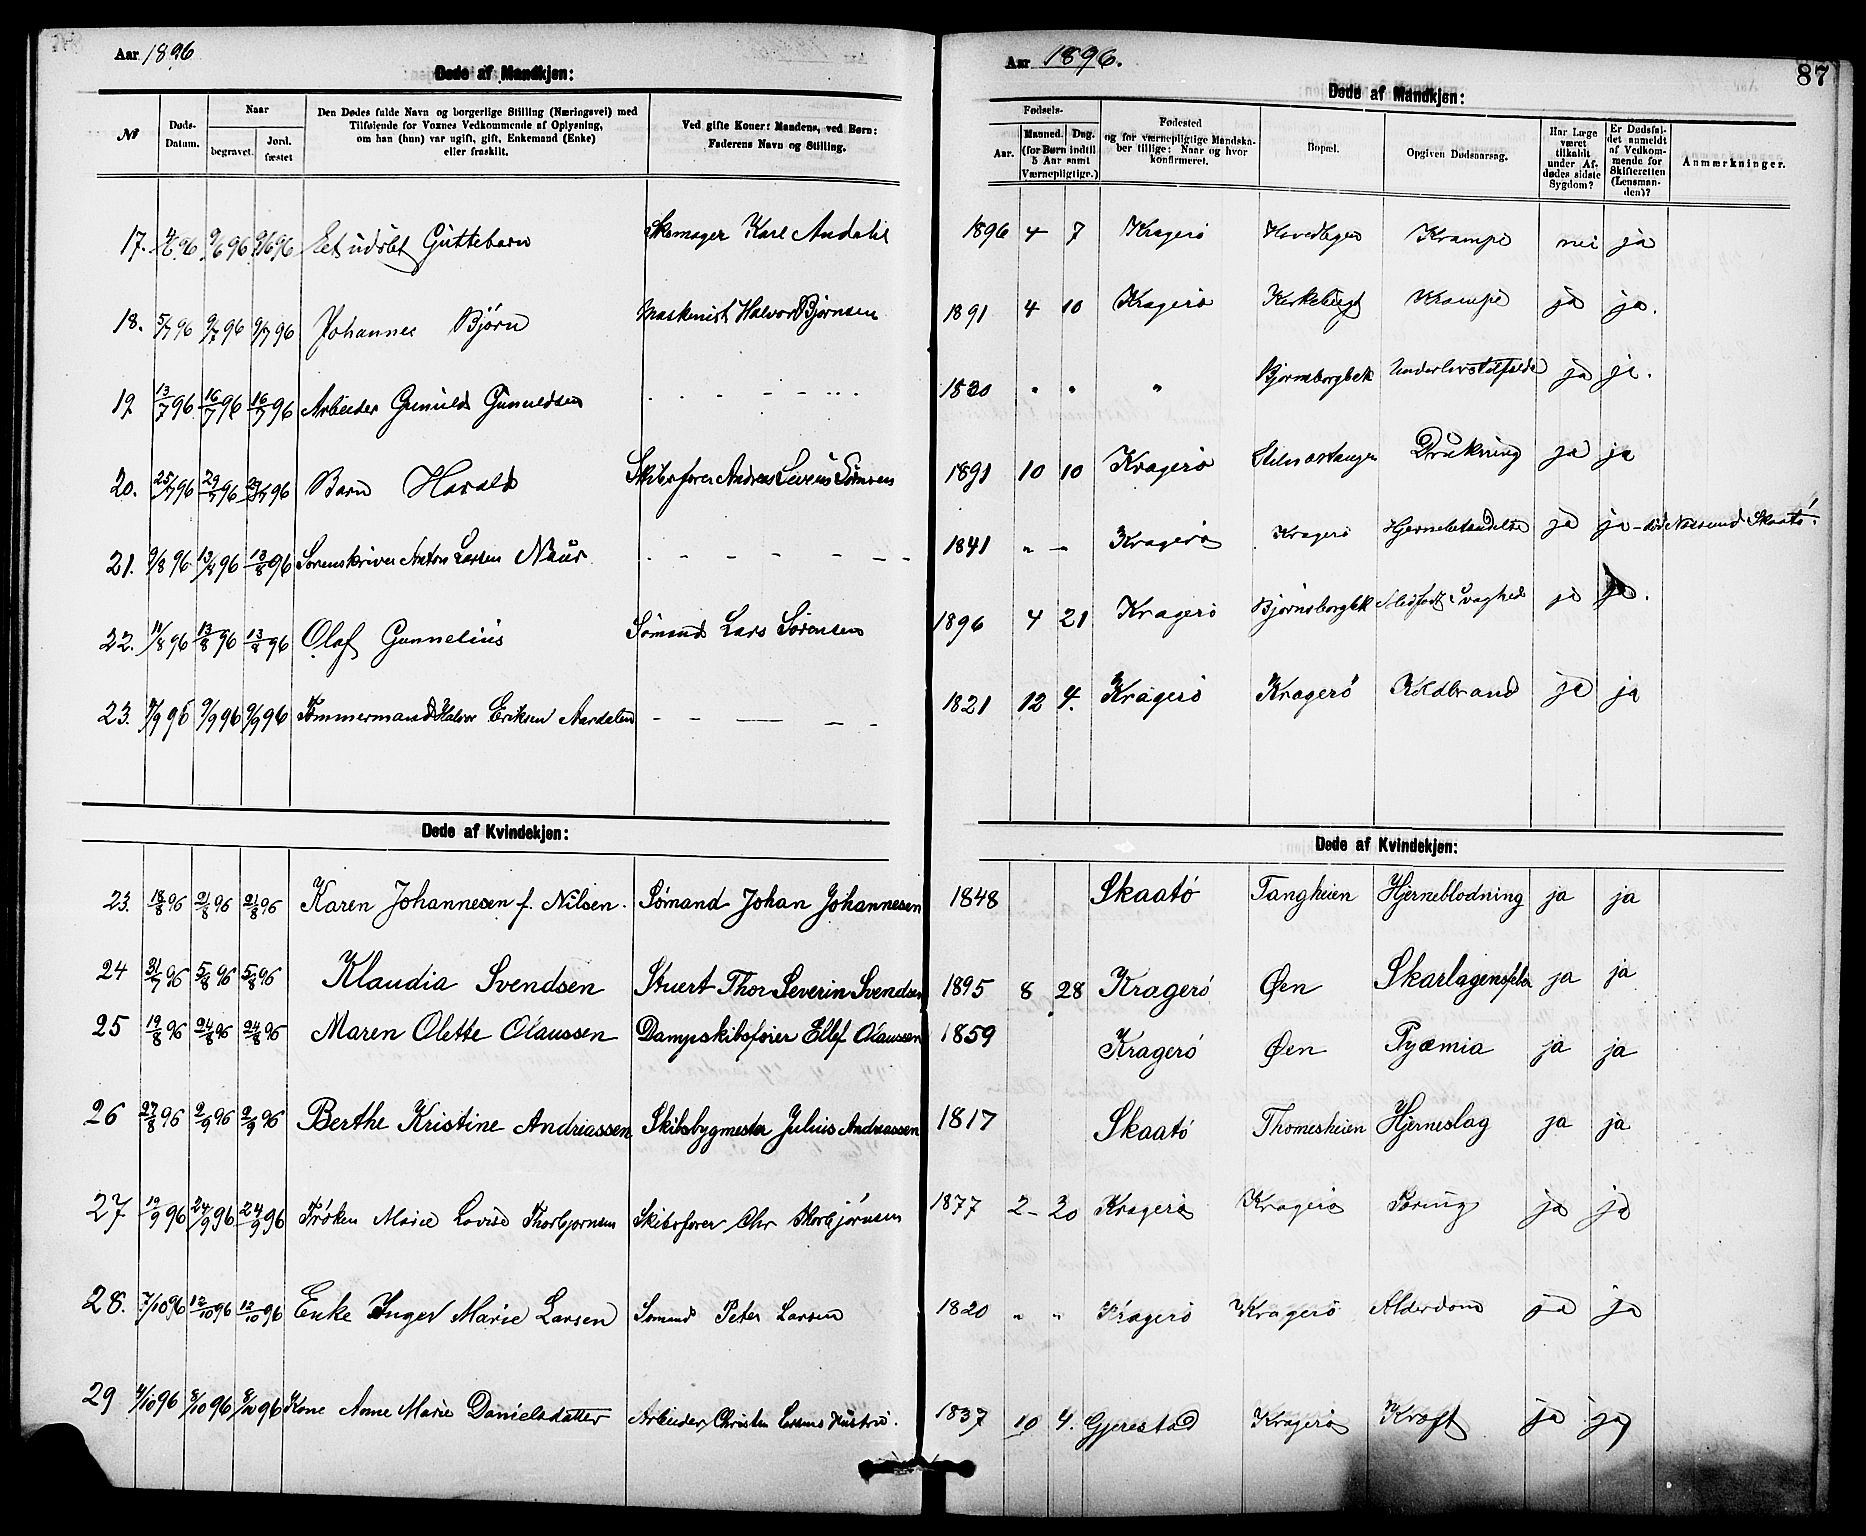 Aar 1896
Døde af Mandkjøn:
№
Døds-Datum.
Naar
begravet.
Jord. fæstet
Den Dødes fulde Navn og borgerlige Stilling (Næringsvei) med
Tilføiende for Voxnes Vedkommende af Oplysning,
om han (hun) var ugift, gift, Enkemand (Enke)
eller fraskilt.
Ved gifte Koner: Mandens, ved Børn:
Faderens Navn og Stilling.
17. 9/6 96 9/6 96 Et udøbt Guttebarn Skomager Karl Andahl
18. 5/7 96 9/7 96 9/7 96 Johannes Bjørn Maskinist Halvor Bjørnsen
19 13/7 96 16/7 96 16/7 96 Arbeider Gunuld Gunuldsen
20. 25/7 96 29/7 96 29/7 96 Barn Harald Skibsfører Andreas
21. 9/8 96 13/8 96 13/8 96 Sorenskriver Anton Larsen Nuur
22. 11/8 96 13/8 96 13/8 96 Olaf Gunnelius Sømand Lars Sørensen
23. 9/9 96 9/9 96 Tømmermand Halvor Eriksen Aardalen
Døde af Kvindekjøn:
23. 18/8 96 21/8 96 21/8 96 Karen Johannesen f. Nilsen. Sømand Johan Johannesen
24 31/7 96 5/8 96 5/8 96 Klaudia Svendsen Stuert Thor Severin Svendsen
25 19/8 96 24/8 96 24/8 96 Maren Olette Olaussen Dampskibsfører Ellef Olaussen
26 27/8 96 2/9 96 2/9 96 Berthe Kristine Andriassen Skibsbygmester Julius Andreassen
27 19/9 96 24/9 96 24/9 96 Frøken Marie Lovise Thorbjørnsen Skibsfører Chr Thorbjørnsen
28. 7/10 96 12/10 96 12/10 96 Enke Inger Marie Larsen Sømand Peter Larsen
29 4/10 96 8/10 96 8/10 96 Kone Anne Marie Danielsdatter Arbeider Christen Hustru.
Aar 1896.
87
Døde af Mandkjøn:
Fødsels-
Aar.
Maaned. Dag.
(for Børn indtil
5 Aar samt
Værnepligtige.)
Fødested
og for værnepligtige Mandska-
ber tillige: Naar og hvor
konfirmeret.
Bopæl.
Opgiven Dødsaarsag.
Har Læge
været
tilkaldt
under Af-
dødes sidste
Sygdom?
Er Dødsfal-
det anmeldt
af Vedkom-
mende for
Skifteretten
(Lensman-
den)?
Anmærkninger.
1896 4 7 Kragerø Krampe nei ja
1891 4 10 Kragerø Krampe ja ja.
1830 " " " Bjørnsborgbek Underlivstilfælde ja ja.
1891 10 10 Kragerø Drukning ja ja
1841 " - Kragerø Kragerø Hjernebetændelse ja ja - død Skaatø!
1896 4 21 Kragerø Bjørnsborgbek Medfødt Svaghed ja ja.
1821 12 4. Kragerø Kragerø Koldbrand ja ja
Døde af Kvindekjøn:
1848 Skaatø Tangheien Hjerneblødning ja ja
1895 8 28 Kragerø Øen Skarlagensfeber ja ja
1859 Kragerø Øen Pyæmia ja ja
1817 Skaatø Thomesheien Hjerneslag ja ja
1877 2- 20 Kragerø Kragerø Tæring ja ja
1820 " " Kragerø Kragerø Alderdom ja ja
1837 10 4. Gjerestad Kragerø Kræft ja ja